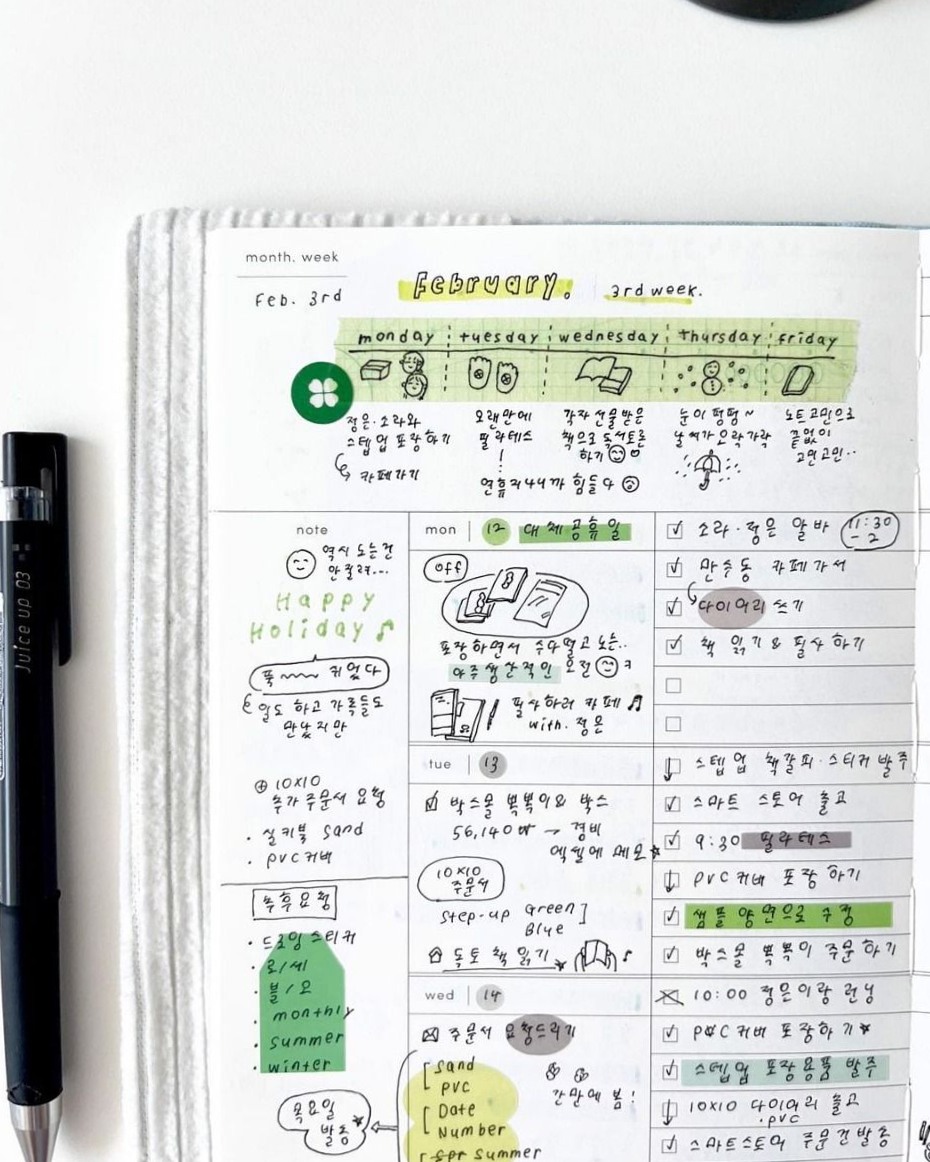 month. week
Feb. 3rd
February.
3rd week.
monday tuesday wednesday thursday friday
정은·소라와
스텝업 포장하기
카페가기
오랜만에
필라테스
연휴지나니까 힘들다
각자 선물받은
책으로 독서토론
하기
눈이 펑펑~
날씨가 오락가락
노트고민으로
끝없이
고민고민..
note
역시 노는건
안질려...
Happy
Holiday
푹 쉬었다
일도 하고 가족들도
만났지만
10X10
추가 주문서 요청
· 실키북 Sand
· PVC커버
추후요청
· 드로잉스티커
· 로/세
· 블/오
· monthly
· summer
· winter
목요일
발송
mon 12 대체공휴일
off
포장하면서 수다떨고 노는..
아주생산적인 오전 ㅋ
필사하러 카페
with. 정은
tue 13
박스몰 뽁뽁이& 박스
56,140₩ → 경비
엑셀에 메모
10X10
주문서
Step-up Green
Blue
독토 책 읽기
wed 14
주문서 요청드리기
Sand
PVC
Date
Number
간만에 봄!
Spr summer
소라·정은 알바 11:30
-2
만수동 카페가서
다이어리 쓰기
책 읽기 & 필사 하기
스텝업 책갈피·스티커 발주
스마트 스토어 출고
9:30 필라테스
PVC 커버 포장 하기
샘플 양면으로 수정
박스몰 뽁뽁이 주문하기
10:00 정은이랑 런닝
PVC커버 포장하기
스텝업 포장용품 발주
10X10 다이어리 출고
·PVC
스마트스토어 주문건발송
Juice up 03